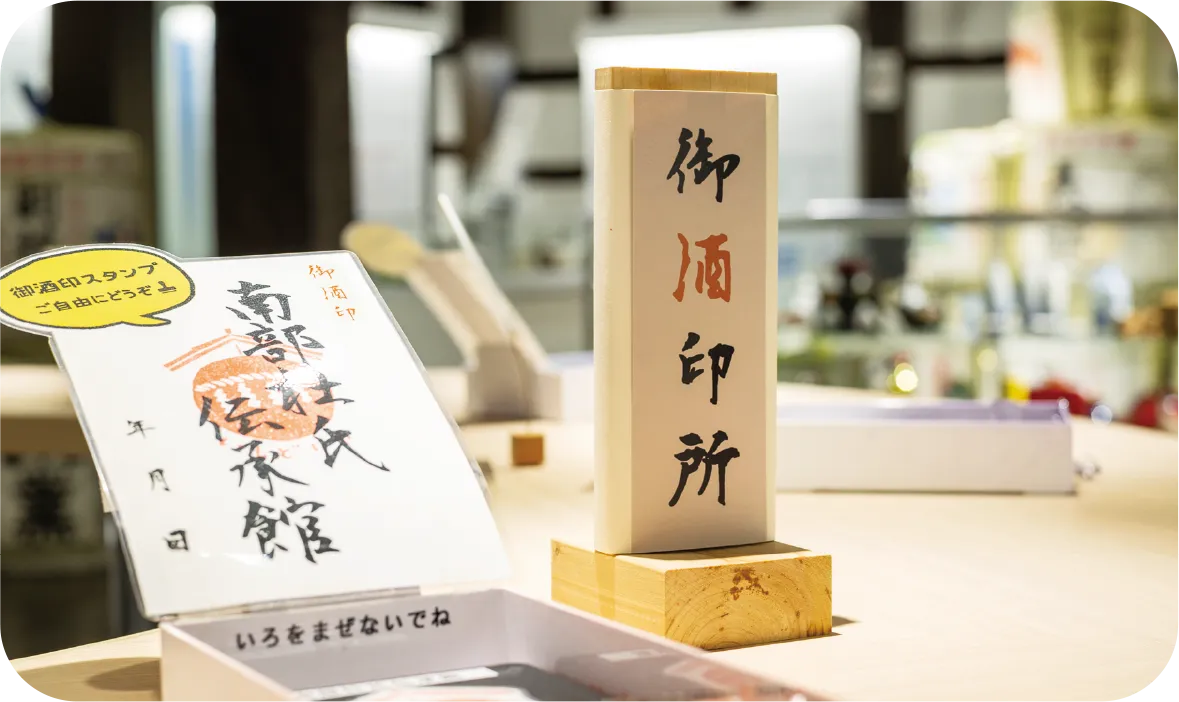 御酒印スタンプ
ご自由にどうぞ
御酒印
南部杜氏
伝承館
年月日
いろをまぜないでね
御酒印所